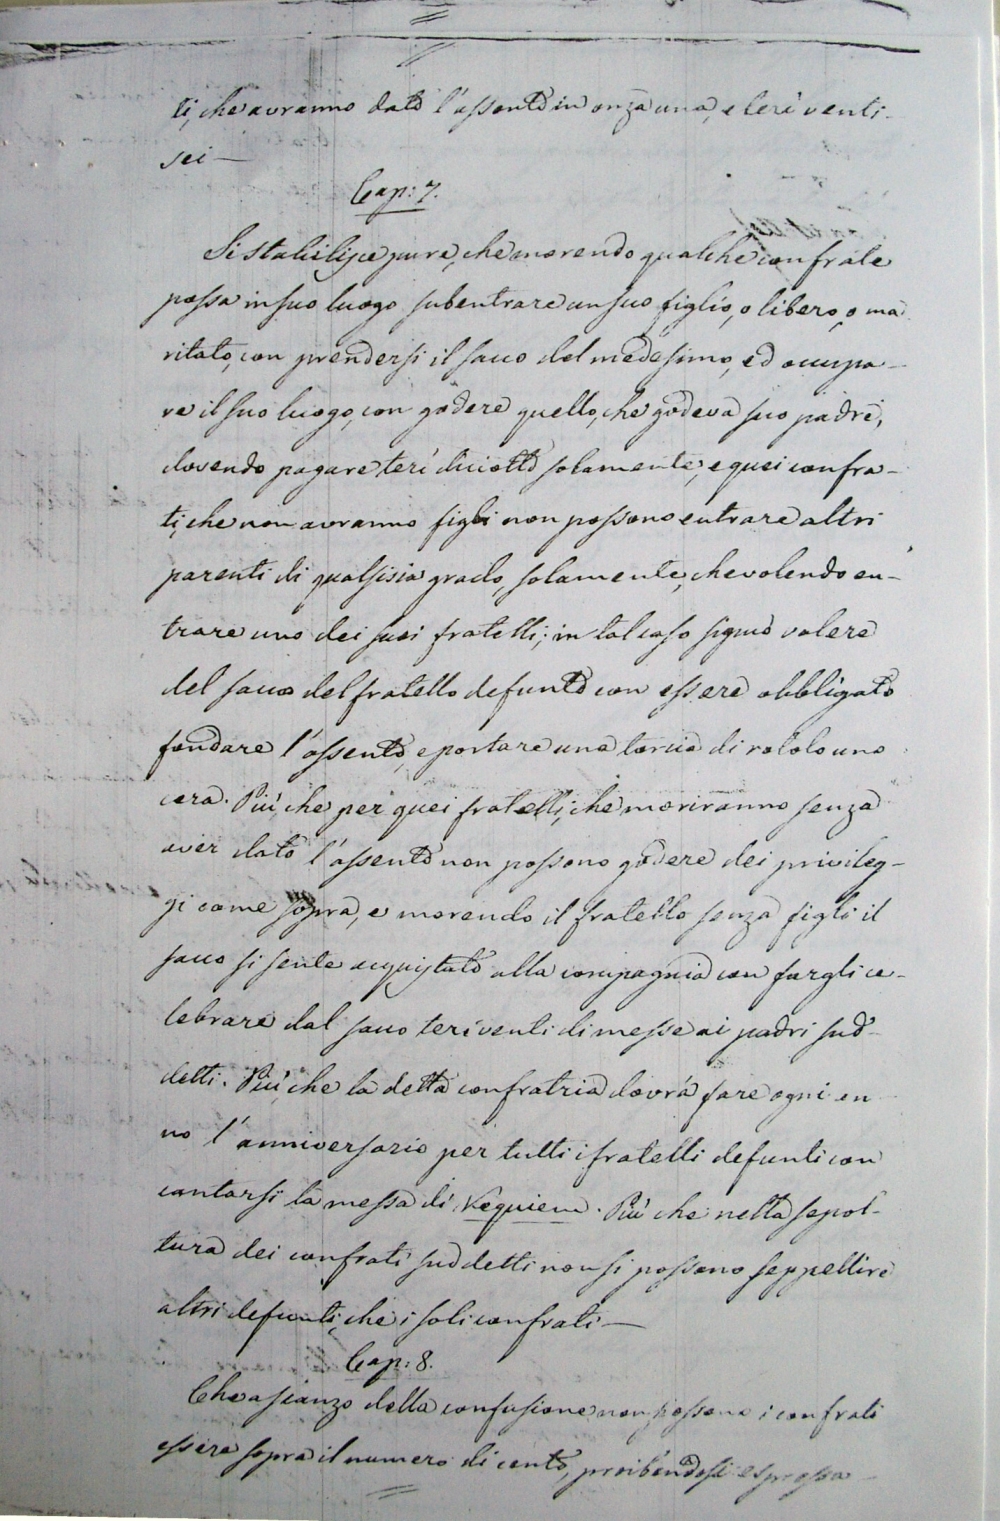 ti, che avranno dato l'assento in onza una, e terì venti-
sei —
Cap: 7.
Si stabilisce pure, che morendo qualche confrate
possa in suo luogo subentrare un suo figlio, o libero, o ma
ritato, con prendersi il sacco del medesimo, ed occupa-
re il suo luogo, con godere quello, che godeva suo padre,
dovendo pagare terì diciotto solamente, e quei confra-
ti, che non avranno figli non possono entrare altri
parenti di qualsisia grado, solamente, che volendo en-
trare uno dei suoi fratelli; in tal caso si può valere
del sacco del fratello defunto con essere obbligato
fondare l'assento, e portare una torcia di rotolo uno
cera. Più, che per quei fratelli, che moriranno senza
aver dato l'assento non possono godere dei privileg-
gi come sopra, e morendo il fratello senza figli il
sacco si sente acquistato alla compagnia con fargli ce-
lebrare dal sacco terì venti di messe ai padri sud-
detti. Più, che la detta confratria dovrà fare ogni an
no l'anniversario per tutti i fratelli defunti con
cantarsi la messa di Requiem. Più che nella sepol-
tura dei confrati suddetti non si possono seppellire
altri defunti, che i soli confrati —
Cap: 8.
Che a scanzo della confusione non possono i confrati
essere sopra il numero di cento, proibendosi espressa-